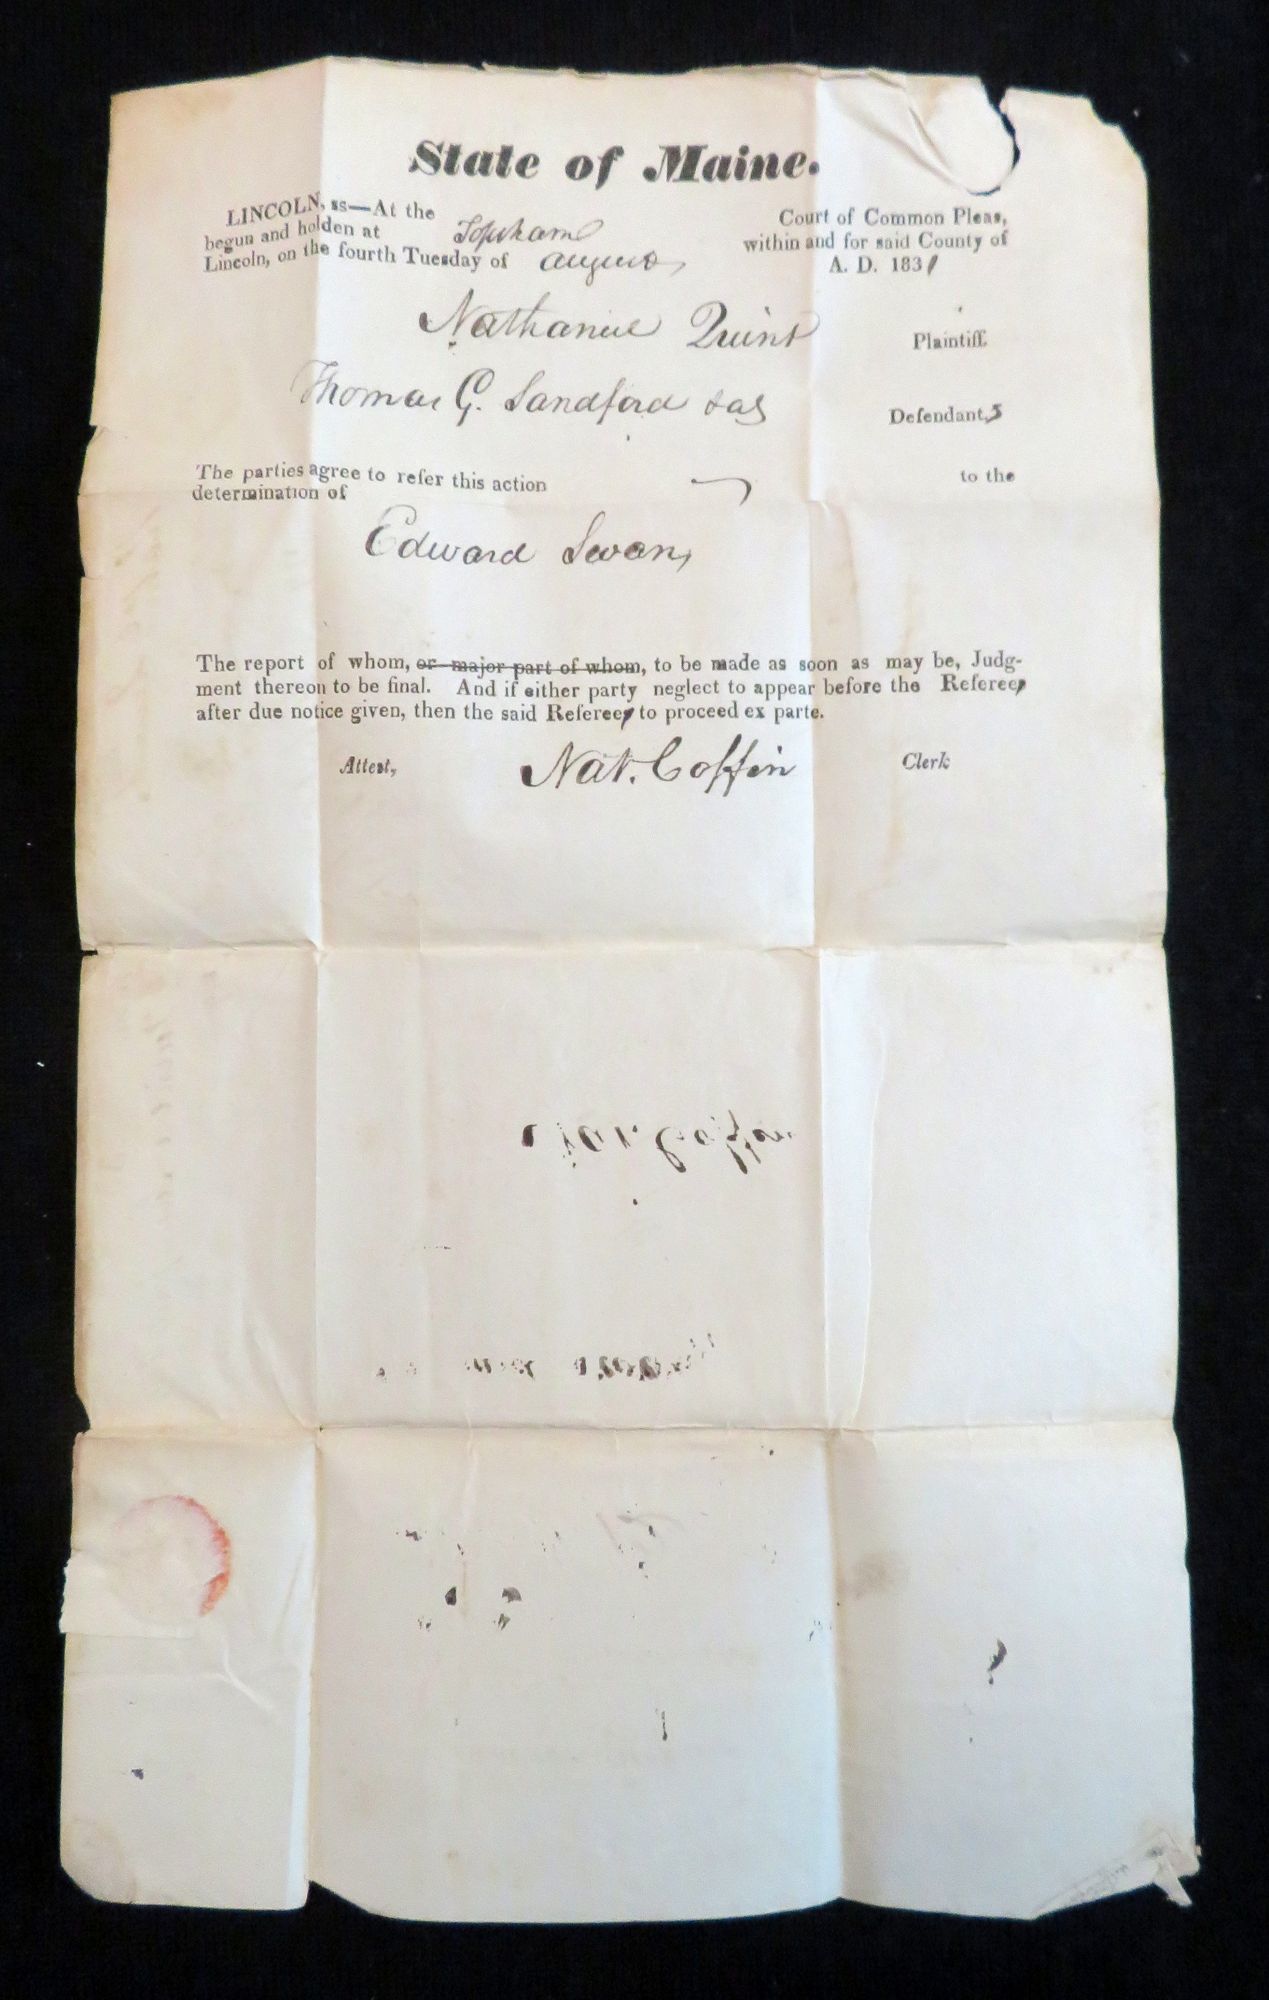 State of Maine.
LINCOLN, ss—At the Court of Common Pleas,
begun and holden at Topsham within and for said County of
Lincoln, on the fourth Tuesday of August, A. D. 1831
Nathaniel Quint Plaintiff.
Thomas G. Sandford & als Defendants
The parties agree to refer this action to the
determination of
Edward Swan,
The report of whom, or major part of whom, to be made as soon as may be, Judg-
ment thereon to be final. And if either party neglect to appear before the Referee,
after due notice given, then the said Referee, to proceed ex parte.
Attest, Nat. Coffin Clerk